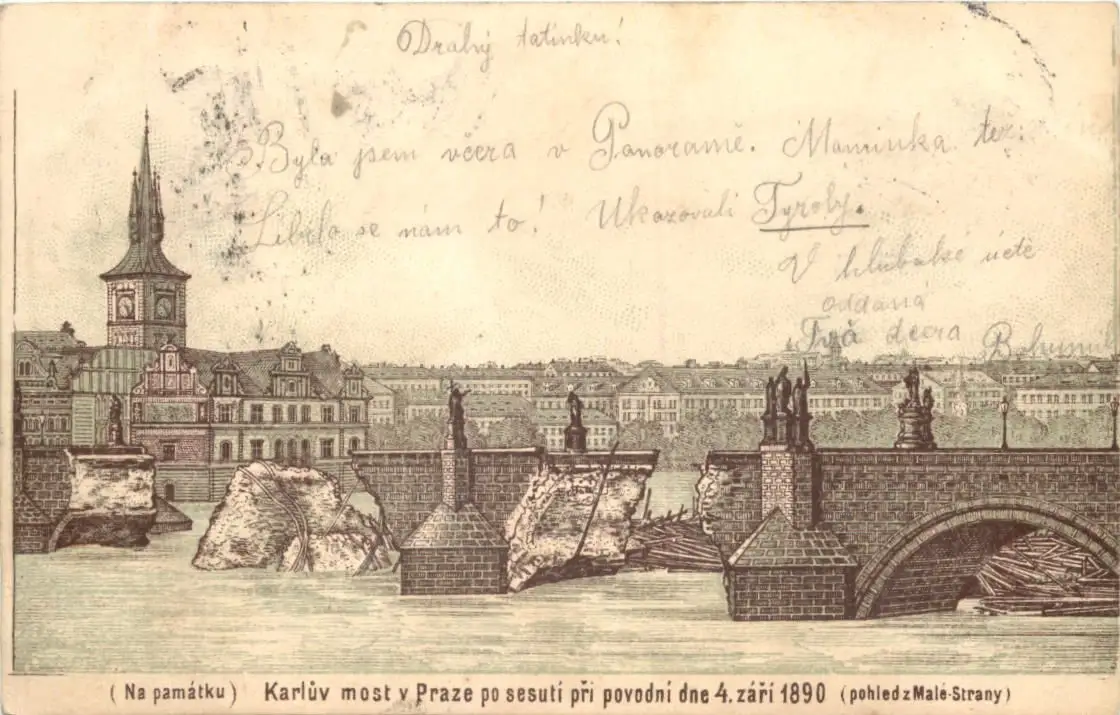 Drahý tatínku!
Byla jsem včera v Panoramě. Maminka tez.
Líbilo se nám to! Ukazovali Tyroly.
V hluboké úctě
oddaná
Tvá dcera
(Na památku) Karlův most v Praze po sesutí při povodni dne 4. září 1890 (pohled z Malé-Strany)